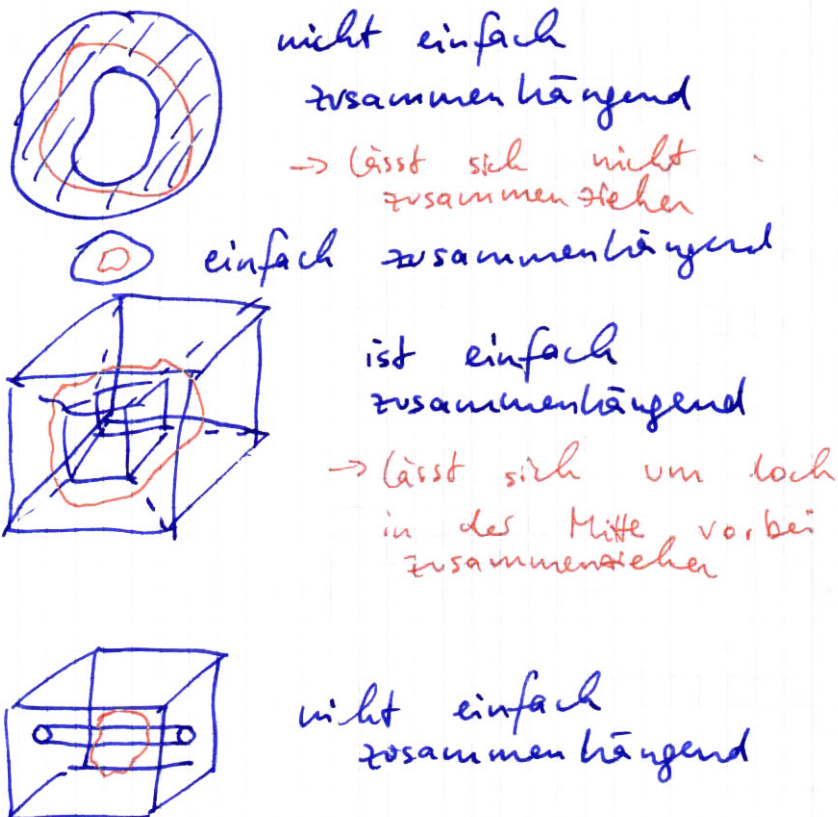 nicht einfach
zusammenhängend
→ lässt sich nicht
zusammenziehen
einfach zusammenhängend
ist einfach
zusammenhängend
→ lässt sich um loch
in der Mitte vorbei
zusammenziehen
nicht einfach
zusammenhängend